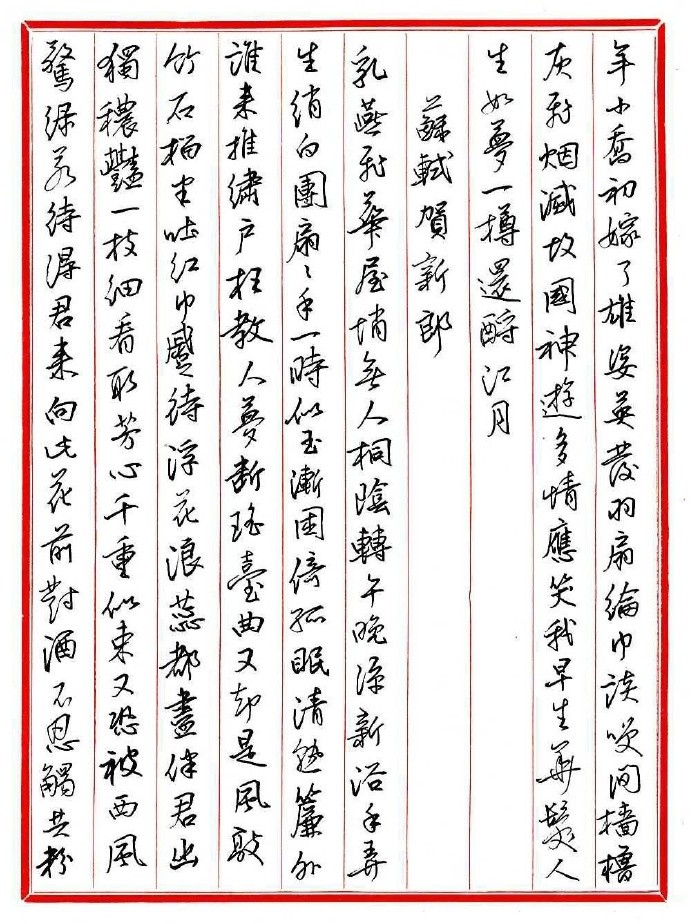 年小喬初嫁了雄姿英發羽扇綸巾談笑間檣櫓
灰飛烟滅故國神遊多情應笑我早生華髮人
生如夢一樽還酹江月
蘇軾賀新郎
乳燕飛華屋悄無人桐陰轉午晚涼新浴手弄
生綃白團扇〻手一時似玉漸困倚孤眠清熟簾外
誰来推繡户枉教人夢斷瑤臺曲又却是風敲
竹石榴半吐紅巾蹙待浮花浪蕊都盡伴君幽
獨穠豔一枝細看取芳心千重似束又恐被西風
驚綠若待得君来向此花前對酒不忍觸共粉